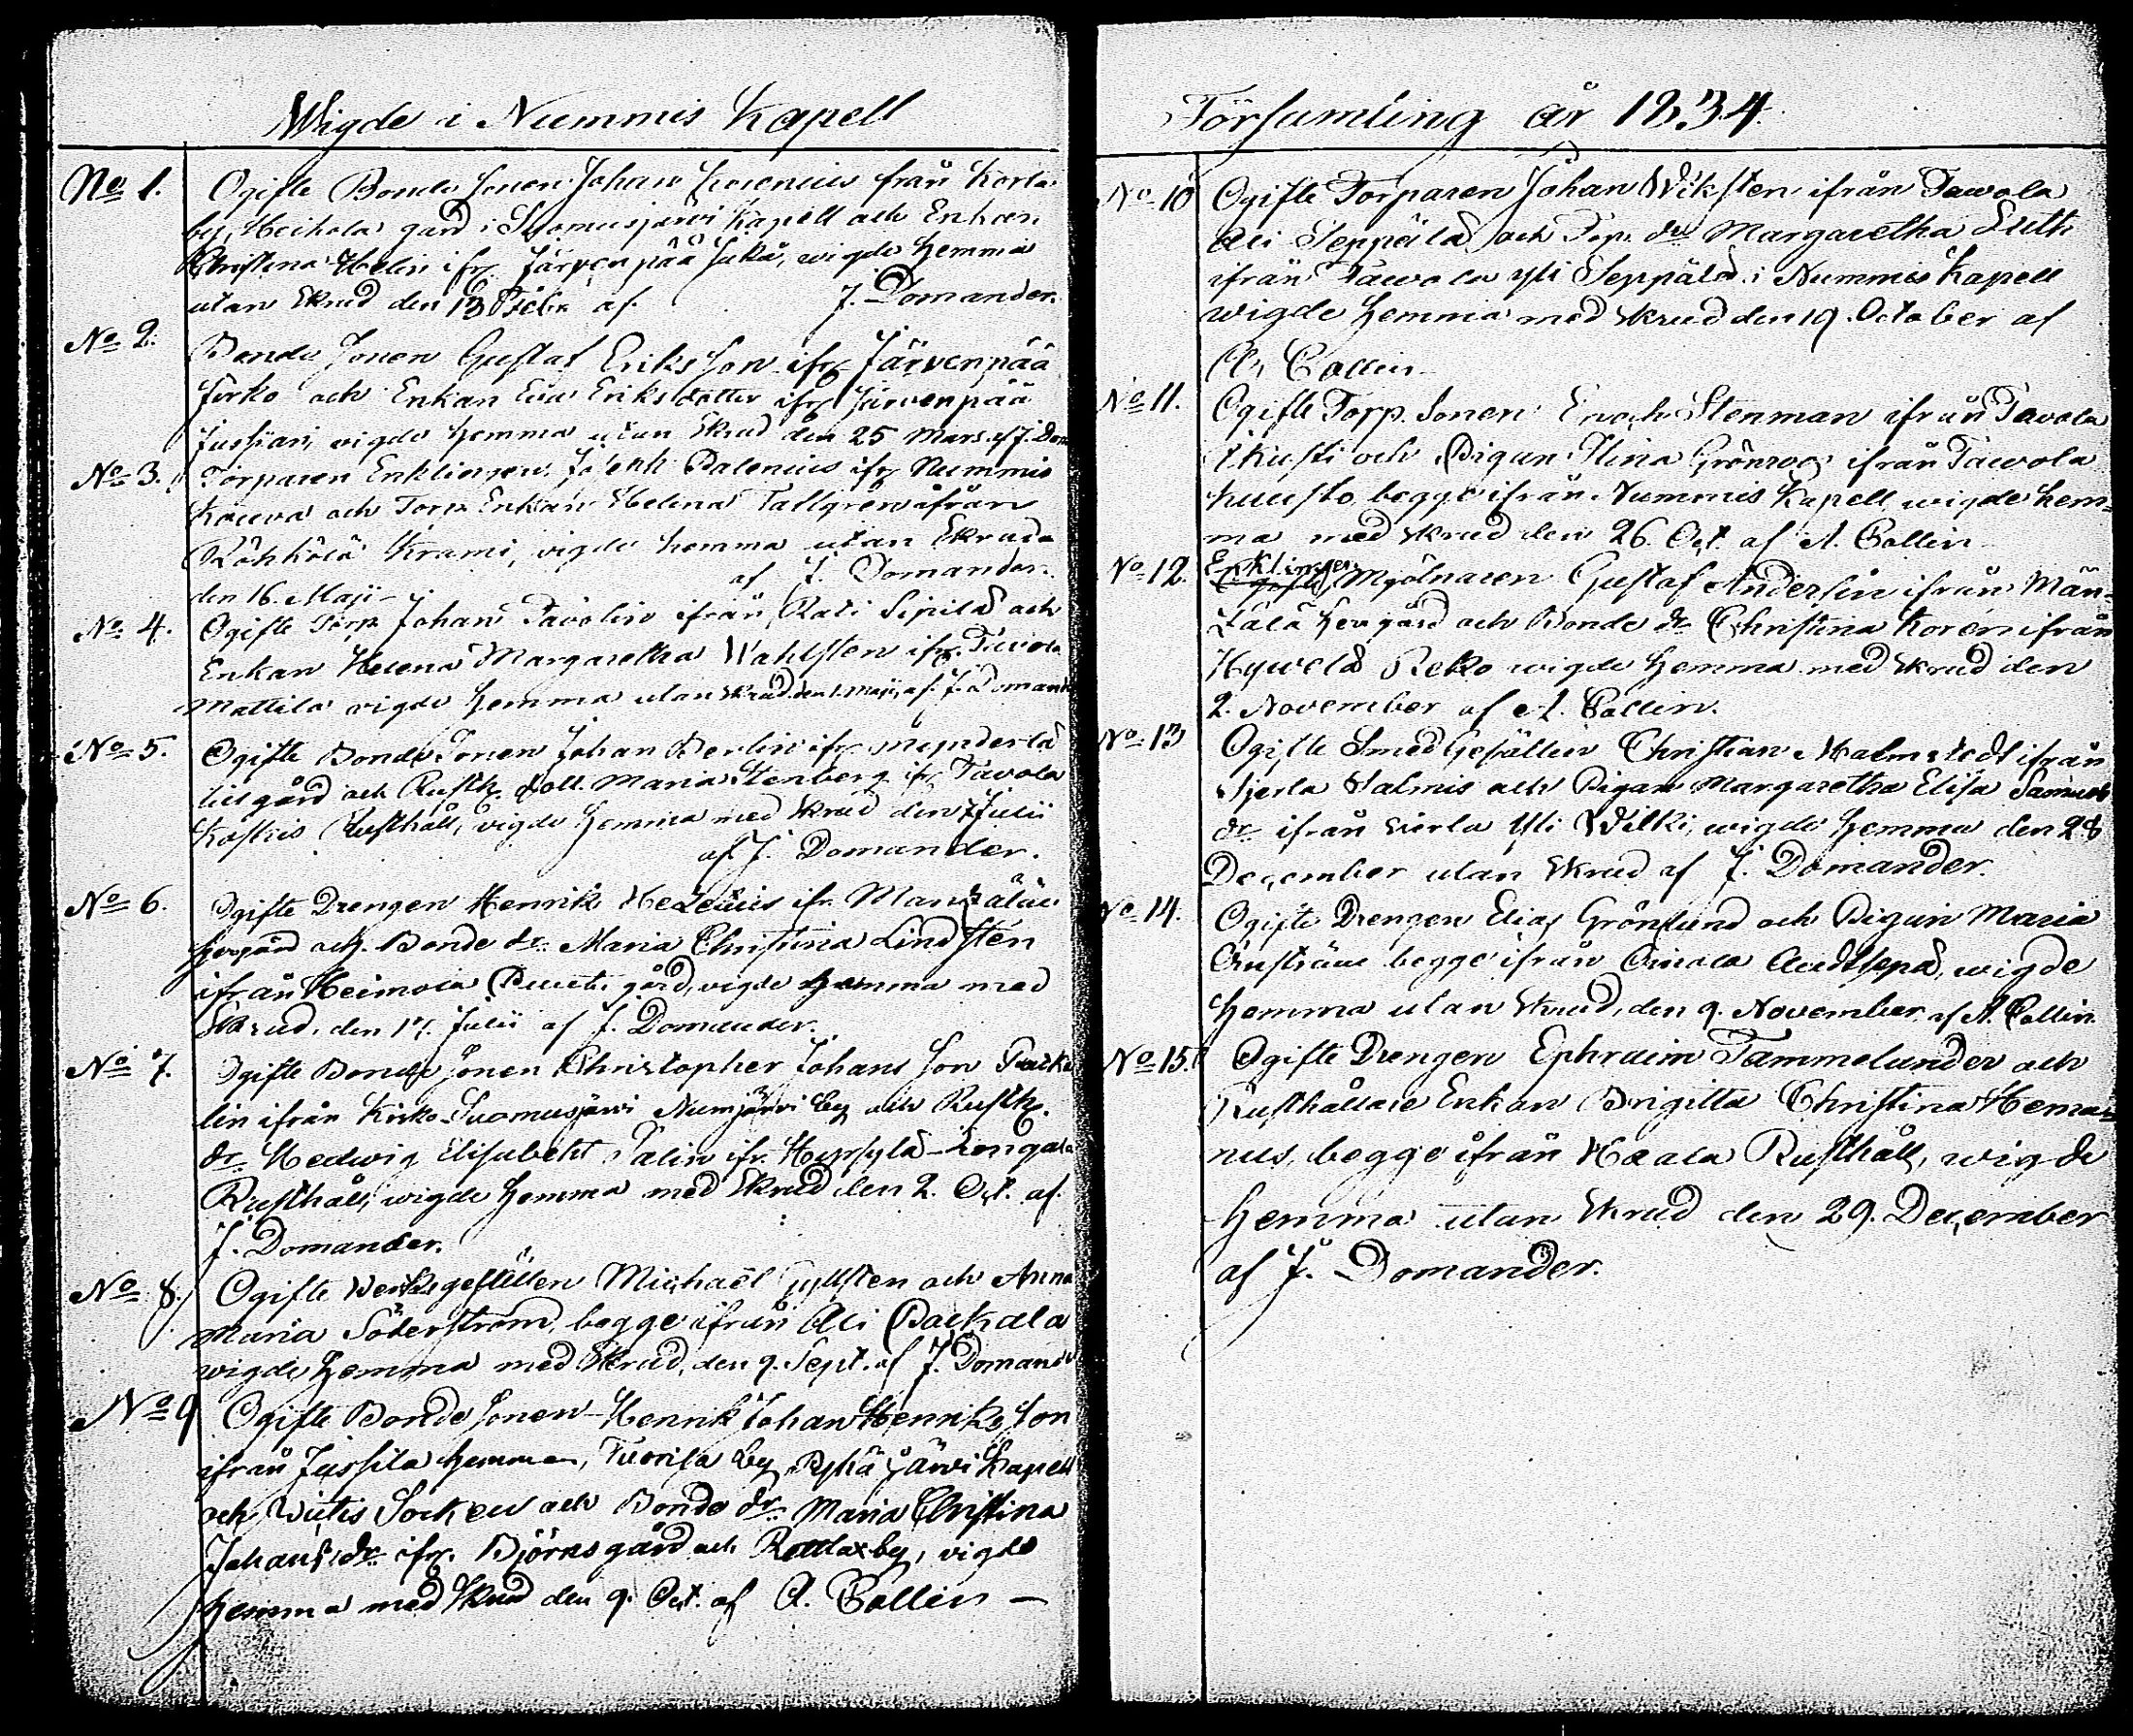 Wigde i Nummis Kapell
No 1. Ogifte Bonde Sonen Johan from Korla
by, Heikola gård i Suomusjärvi Kapell och Enkan
Christina Helin ifr. Järvenpää wigde hemma
utan Skrud den 13 af J. Domander.
No 2. Bonde Sonen Gustaf Eriksson ifr. Järvenpää
Jirko och Enkan Eva Eriksdotter ifr Järvenpää
Jussjari, vigde hemma utan Skrud den 25 Mars af J. Dom
No 3. Torparen Enklingen Joseph Palenius ifr Nummis
Kouva och Torp. Enkan Helena Tallgren ifrån
Röhkölä Krami, vigde hemma utan Skrud
den 16. Maji af J. Domander.
No 4. Ogifte Torp. Johan Tavolin ifrån Rati Sipilä och
Enkan Helena Margaretha Wahlsten ifr. Tavola
Mattila vigde hemma utan Skrud den 1. Maji, af J. Domand
No 5. Ogifte Bonde Sonen Johan Berlin ifr.
gård och Rusth. dott. Maria Stenberg ifr Tavola
Koskis Rusthåll, vigde hemma med Skrud den 7 Julii
af J. Domander.
No 6. Ogifte Drengen Henrik ifr. Mantzälä
hergård och Bonde dr. Maria Christina Lindsten
ifrån Heimola gård, vigde hemma med
Skrud, den 17. Julii af J. Domander.
No 7. Ogifte Bonde Sonen Christopher Johans Son
lin ifrån Kirko Suomusjärvi Numjärvi by och Rusth.
dr. Hedwig Elisabeht Palin ifr. Hyrsylä-Längala
Rusthåll, wigde hemma med Skrud den 2. Oct. af
J. Domander.
No 8. Ogifte Michaël Gyllsten och Anna
Maria Söderström, begge ifrån Ali Paakala
wigde hemma med Skrud, den 9. Sept. af J. Domand
No 9 Ogifte Bonde Sonen Henrik Johan Henriks Son
ifrån Jussila hemman, Tuorila by Pyhäjärvi Kapell
och Wictis Socken och Bonde dr. Maria Christina
Johans dr. ifr. Björns gård och by, vigde
hemma med Skrud den 9. Oct. af A. Collin —
Församling år 1834.
No 10 Ogifte Torparen Johan Wiksten ifrån Tawola
Ali Seppälä och Top. dr. Margaretha Luth
ifrån Tawola yli Seppälä i Nummis Kapell
wigde hemma med skrud den 19. October af
A. Collin
No 11. Ogifte Torp. Sonen Enoch Stenman ifrån Tavola
Ikusti och Pigan Stina Grönroos ifrån Tawola
begge ifrån Nummis Kapell wigde hem=
ma med skrud den 26. Oct. af A. Collin
No 12. Enklingen Mjölnaren Gustaf Andersin ifrån Män-
tzälä Her gård och Bonde dr. Christina Koren ifrån
Hywelä Reko wigde hemma med skrud den
2. November af A. Collin.
No 13 Ogifte Smed Gesällen Christian Malmstedt ifrån
Sjerla Salmis och Pigan Margaretha Elisa Samuels
dr. ifrån Sierla Yli Wilki, wigde hemma den 28
December utan skrud af J. Domander.
No 14. Ogifte Drengen Elias Grönlund och Pigan Maria
begge ifrån wigde
hemma utan skrud, den 9. November af A. Collin.
No 15. Ogifte Drengen Ephraim Tammelander och
Rusthållare Enkan Brigitta Christina Hema=
nus, begge ifrån Haala Rusthåll, wigde
hemma utan skrud den 29. December
af J. Domander.